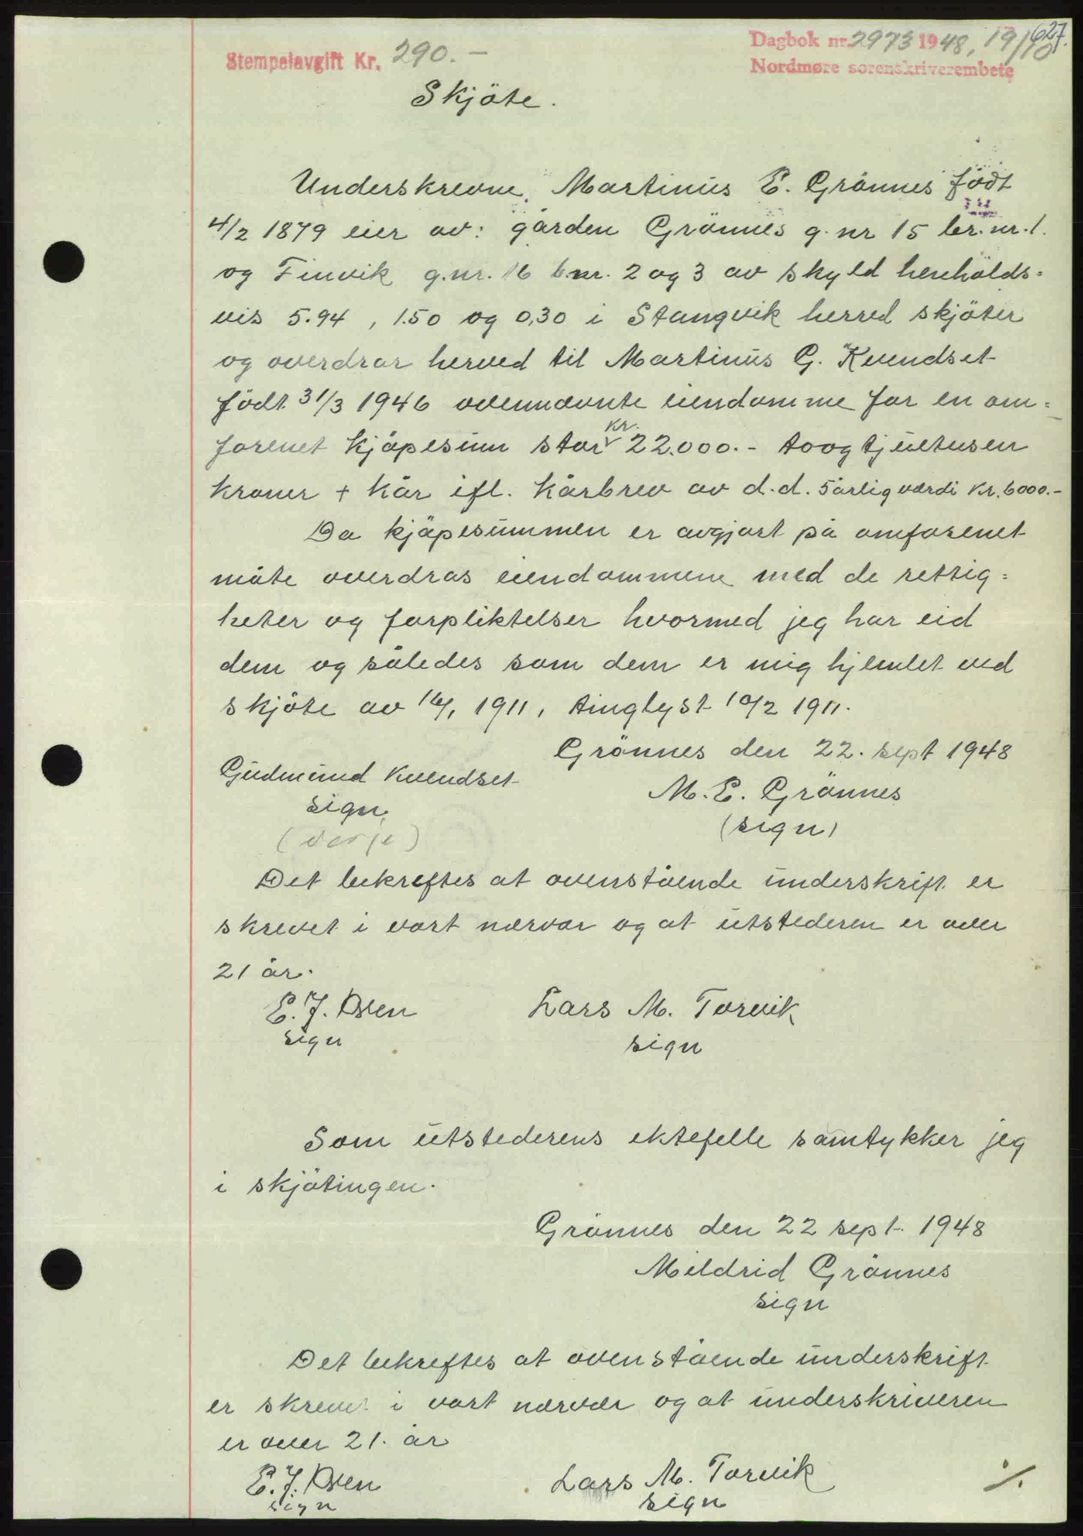 627.
Stempelavgift Kr. 290.-
Dagbok nr. 2973 1948, 19/10
Nordmøre sorenskriverembete
Skjöte.
Underskrevne, Martinus E. Grönnes født
4/2 1879 eier av: gården Grönnes g. nr 15 br. nr. 1.
og Finvik g.nr. 16 bnr. 2 og 3 av skyld henholds=
vis 5.94, 1.50 og 0,30 i Stangvik herred skjöter
og overdrar herved til Martinus G. Kvendset
født 31/3 1946 ovennevnte eiendomme for en om=
forenet kjöpesum stor kr. 22.000.- toogtjuetusen
kroner + kår ifl. kårbrev av d.d. 5årlig værdi kr. 6000.-
Da kjöpesummen er avgjort på omforenet
måte overdras eiendommene med de rettig=
heter og forpliktelser hvormed jeg har eid
dem og således som dem er mig hjemlet ved
skjöte av 16/1 1911, tinglyst 10/2 1911.
Grönnes den 22. sept 1948
Gudmund Kvendset
M. E. Grönnes
sign.
(sign)
(verje)
Det bekreftes at ovenstående underskrift er
skrevet i vort nærvær og at utstederen er over
21 år.
E. J. Øien
Lars M. Torvik
sign
sign
Som utstederens ektefelle samtykker jeg
i skjötingen.
Grönnes den 22 sept. 1948
Mildrid Grönnes
sign
Det bekreftes at ovenstående underskrift
er skrevet i vort nærvær og at underskriveren
er over 21. år
E. J. Øien
Lars M. Torvik
sign
sign
./.